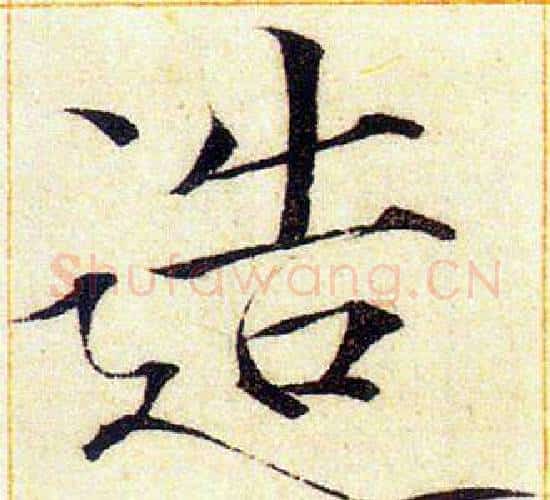 造
Shufawang.CN